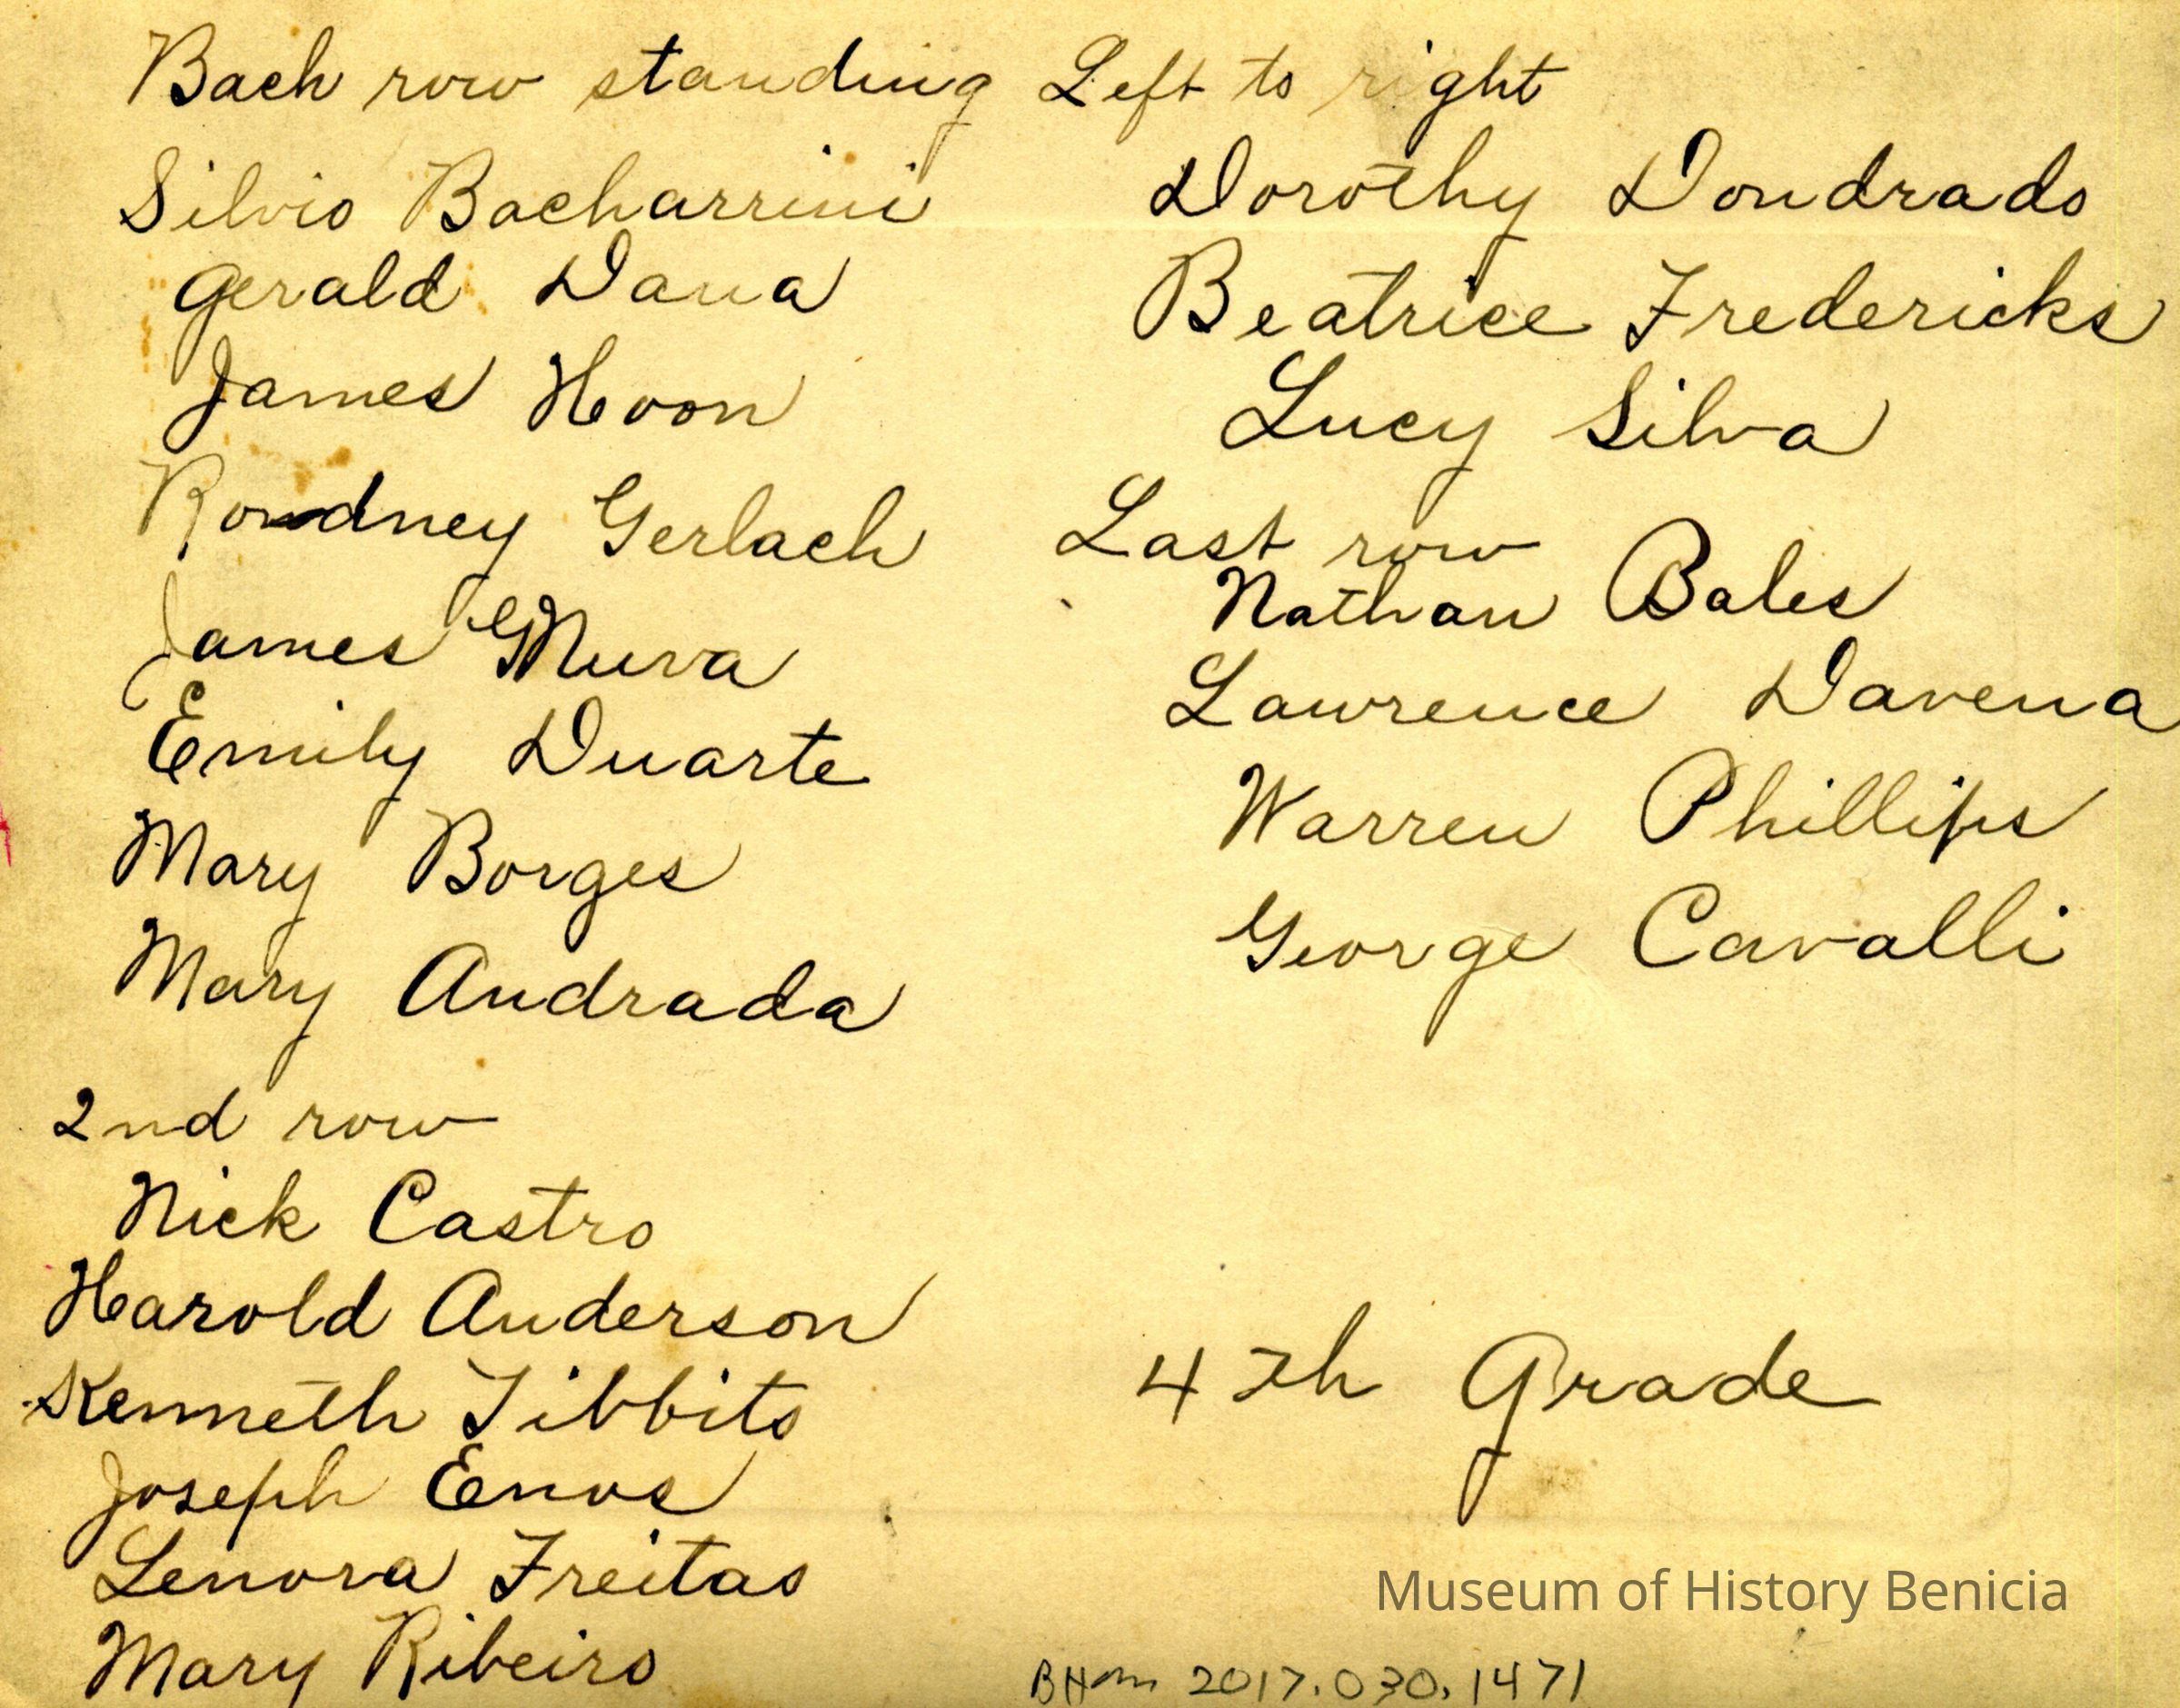 Back row standing Left to right
Silvio Bacharrini
Gerald Dana
James Hoon
Rodney Gerlach
James
Emily Duarte
Mary Borges
Mary Andrada
2nd row
Nick Castro
Harold Anderson
Kenneth Tibbits
Joseph Enos
Lenora Freitas
Mary Ribeiro
Dorothy Dondrado
Beatrice Fredericks
Lucy Silva
Last row
Nathan Bales
Lawrence Davena
Warren Phillips
George Cavalli
4th Grade
Museum of History Benicia
BHM 2017.030.1471